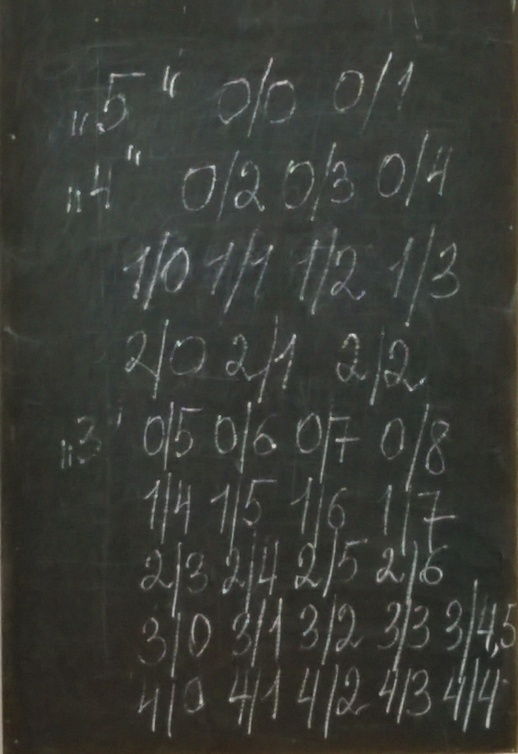 „5“ 0/0 0/1
„4“ 0/2 0/3 0/4
1/0 1/1 1/2 1/3
2/0 2/1 2/2
„3“ 0/5 0/6 0/7 0/8
1/4 1/5 1/6 1/7
2/3 2/4 2/5 2/6
3/0 3/1 3/2 3/3 3/4,5
4/0 4/1 4/2 4/3 4/4